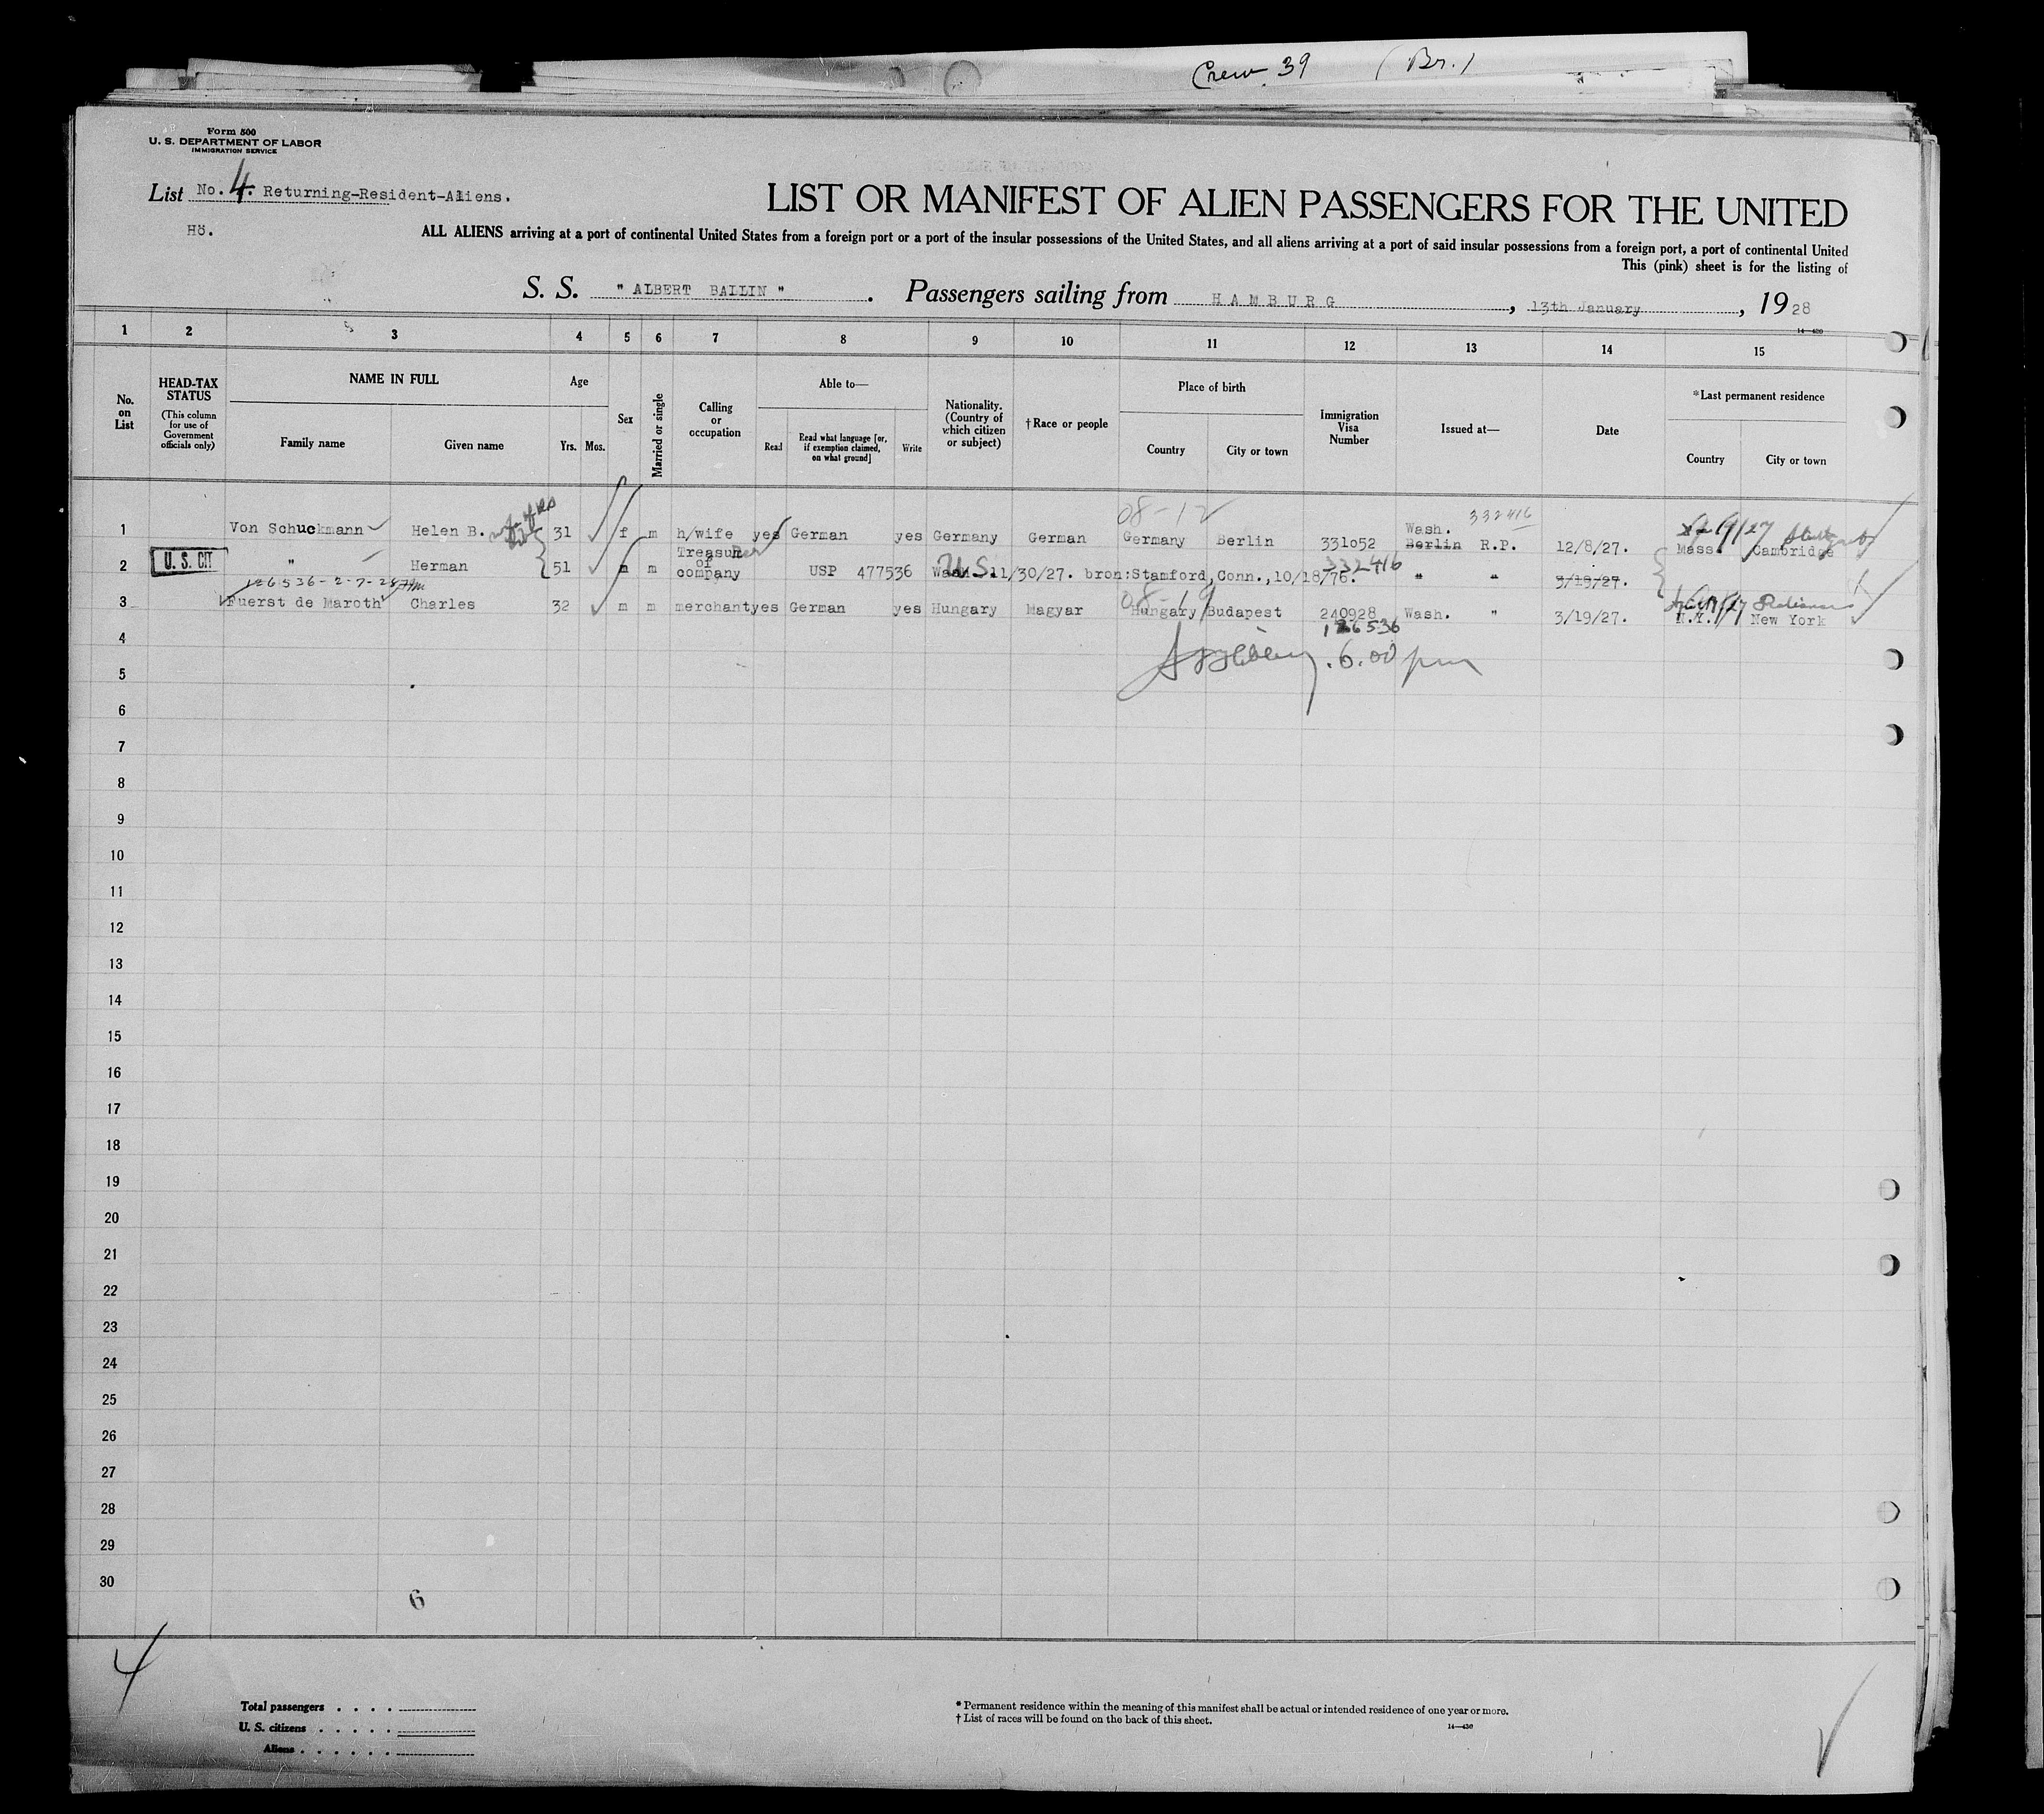 Crew 39 (Br.)
Form 500
U. S. DEPARTMENT OF LABOR
IMMIGRATION SERVICE
List No. 4. Returning-Resident-Aliens.
Hö.
LIST OR MANIFEST OF ALIEN PASSENGERS FOR THE UNITED
ALL ALIENS arriving at a port of continental United States from a foreign port or a port of the insular possessions of the United States, and all aliens arriving at a port of said insular possessions from a foreign port, a port of continental United
This (pink) sheet is for the listing of
S. S. " ALBERT BALLIN ". Passengers sailing from HAMBURG, 13th January, 1928
14—430
1 2 3 4 5 6 7 8 9 10 11 12 13 14 15
No. on List
HEAD-TAX STATUS
(This column for use of Government officials only)
NAME IN FULL
Family name
Given name
Age
Yrs. Mos.
Sex
Married or single
Calling or occupation
Able to—
Read
Read what language [or, if exemption claimed, on what ground]
Write
Nationality. (Country of which citizen or subject)
†Race or people
Place of birth
Country
City or town
Immigration Visa Number
Issued at—
Date
*Last permanent residence
Country
City or town
08-12
332416
1 Von Schuckmann Helen B. 31 f m h/wife yes German yes Germany German Germany Berlin 331052 Wash. Berlin R.P. 12/8/27. Mass. Cambridge
2 U. S. CIT " Herman 51 m m Treasurer of company USP 477536 U.S. 11/30/27. bron:Stamford,Conn.,10/18/76. 332416 " " 3/19/27.
126536-2-7-28
08-19
3 Fuerst de Maroth Charles 32 m m merchant yes German yes Hungary Magyar Hungary Budapest 240928 Wash. " 3/19/27. N.Y. New York
126536
4
6.00 pm
5
6
7
8
9
10
11
12
13
14
15
16
17
18
19
20
21
22
23
24
25
26
27
28
29
30
6
4
Total passengers
U. S. citizens
Aliens
* Permanent residence within the meaning of this manifest shall be actual or intended residence of one year or more.
† List of races will be found on the back of this sheet.
14—430